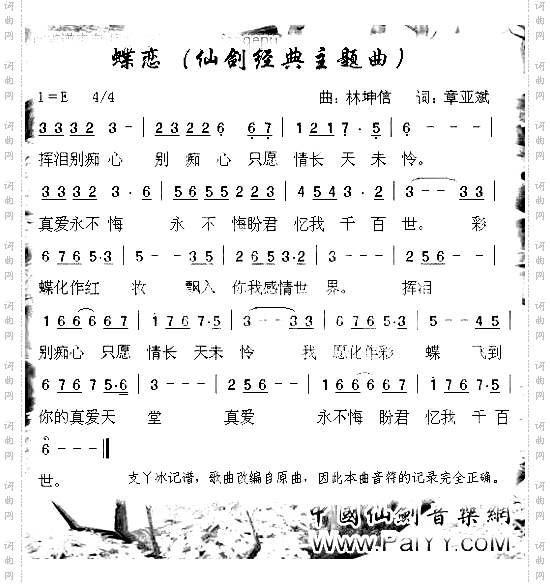 蝶恋（仙剑经典主题曲）
1=E 4/4 曲：林坤信 词：章亚斌
3332 3-|23226 67|1217·5|6---|
挥泪别痴心 别痴心只愿 情长天未怜。
3332 3·6|56552 23|4543·2|3--33|
真爱永不悔 永不悔盼君 忆我千百世。彩
6765·3|5--35|6765·3|3---|256--|
蝶化作红妆 飘入 你我感情世界。 挥泪
166667|1767·5|3--33|6765·3|5--45|
别痴心只愿 情长天未怜 我 愿化作彩 蝶飞到
67675·6|3---|256--|166667|1767·5|
你的真爱天堂 真爱 永不悔盼君 忆我千百
6---‖
世。 支丫冰记谱，歌曲改编自原曲，因此本曲音符的记录完全正确。
中國仙劍音樂網
www.PalYY.com
词曲网
词曲网
词曲网
词曲网
词曲网
词曲网
词曲网
词曲网